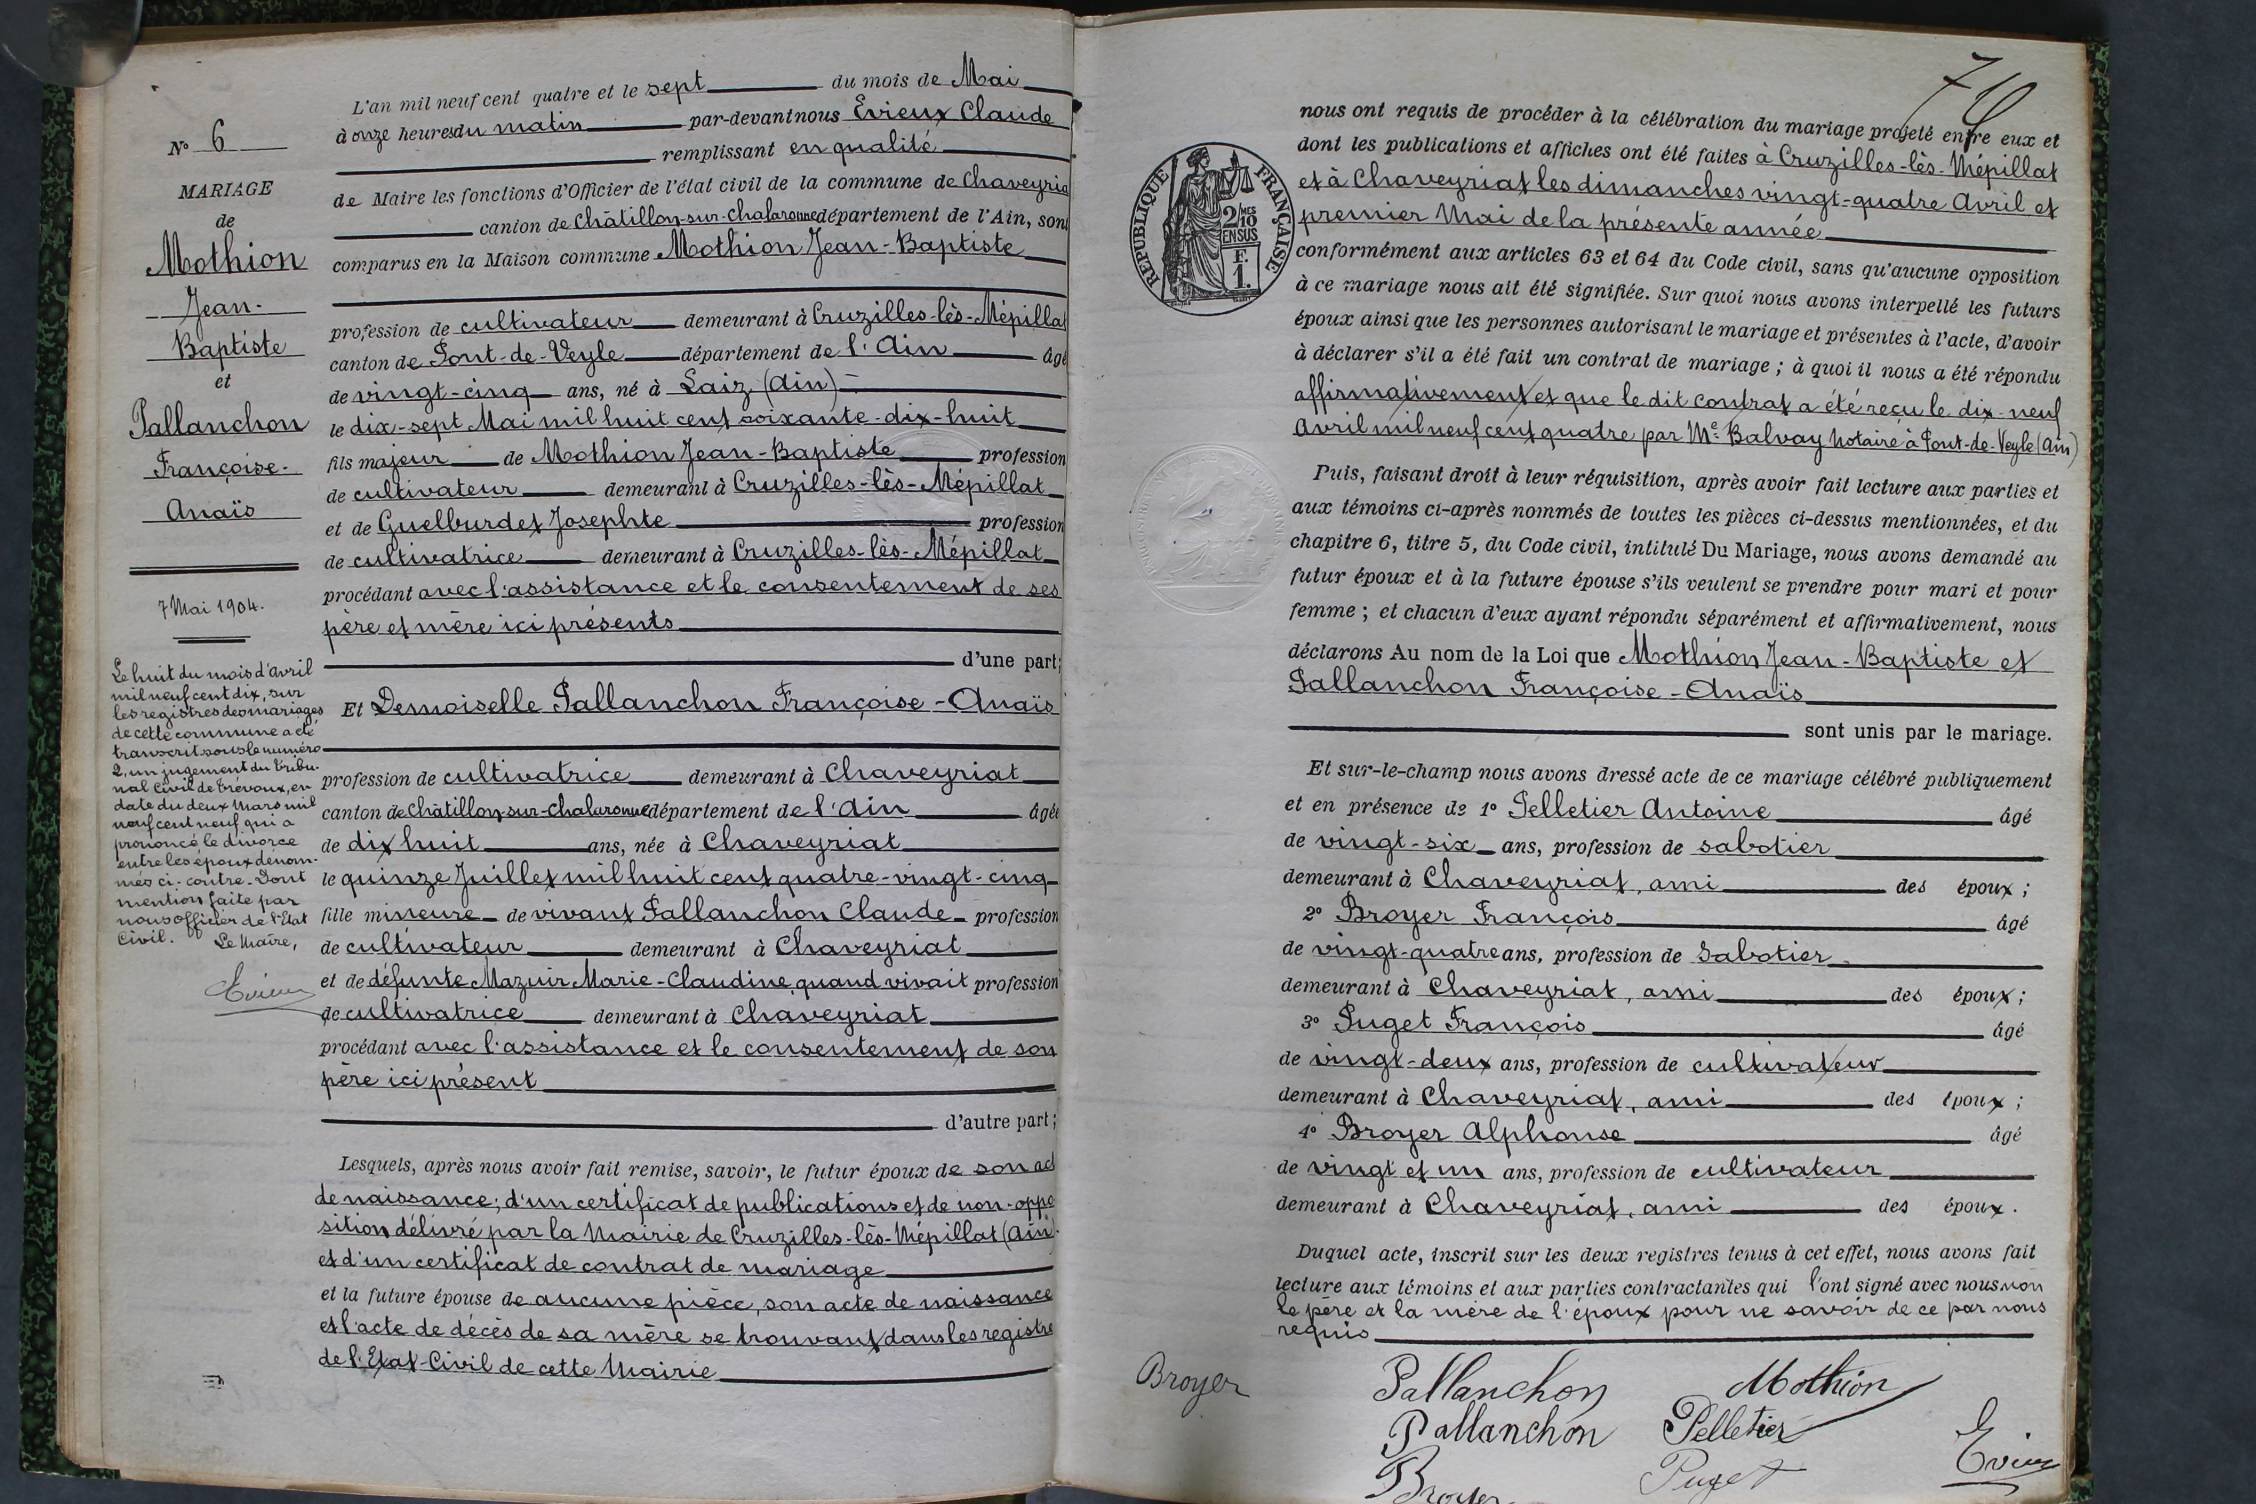 N° 6
MARIAGE
de
Mothion
Jean-
Baptiste
et
Pallanchon
Françoise-
Anaïs
7 Mai 1904.
Le huit du mois d'avril
mil neuf cent dix, sur
les registres des mariages
de cette commune a été
transcrit sous le numéro
2, un jugement du Tribu-
nal Civil de Trévoux, en
date du deux Mars mil
neuf cent neuf qui a
prononcé le divorce
entre les époux dénom-
més ci-contre. Dont
mention faite par
nous officier de l'Etat
Civil. Le Maire,
Evieux
L'an mil neuf cent quatre et le sept du mois de Mai
à onze heures du matin par-devant nous Evieux Claude
remplissant en qualité
de Maire les fonctions d'Officier de l'état civil de la commune de Chaveyria
canton de Châtillon-sur-Chalaronne département de l'Ain, sont
comparus en la Maison commune Mothion Jean-Baptiste
profession de cultivateur demeurant à Cruzilles-lès-Mépillat
canton de Pont-de-Veyle département de l'Ain âgé
de vingt-cinq ans, né à Laiz (Ain)
le dix-sept Mai mil huit cent soixante-dix-huit
fils majeur de Mothion Jean-Baptiste profession
de cultivateur demeurant à Cruzilles-lès-Mépillat
et de Guelburdet Josephte profession
de cultivatrice demeurant à Cruzilles-lès-Mépillat
procédant avec l'assistance et le consentement de ses
père et mère ici présents
d'une part;
Et Demoiselle Pallanchon Françoise-Anaïs
profession de cultivatrice demeurant à Chaveyriat
canton de Châtillon-sur-Chalaronne département de l'Ain âgée
de dix huit ans, née à Chaveyriat
le quinze Juillet mil huit cent quatre-vingt-cinq
fille mineure de vivant Pallanchon Claude profession
de cultivateur demeurant à Chaveyriat
et de défunte Mazuir Marie-Claudine quand vivait profession
de cultivatrice demeurant à Chaveyriat
procédant avec l'assistance et le consentement de son
père ici présent
d'autre part;
Lesquels, après nous avoir fait remise, savoir, le futur époux de son act
de naissance; d'un certificat de publications et de non-oppo
sition délivré par la Mairie de Cruzilles-lès-Mépillat (Ain)
et d'un certificat de contrat de mariage
et la future épouse de aucune pièce, son acte de naissance
et l'acte de décès de sa mère se trouvant dans les registre
de l'Etat-Civil de cette Mairie
RÉPUBLIQUE FRANÇAISE
2/10 MES
EN SUS
F.
1.
nous ont requis de procéder à la célébration du mariage projeté entre eux et
dont les publications et affiches ont été faites à Cruzilles-lès-Mépillat
et à Chaveyriat les dimanches vingt-quatre Avril et
premier Mai de la présente année
conformément aux articles 63 et 64 du Code civil, sans qu'aucune opposition
à ce mariage nous ait été signifiée. Sur quoi nous avons interpellé les futurs
époux ainsi que les personnes autorisant le mariage et présentes à l'acte, d'avoir
à déclarer s'il a été fait un contrat de mariage; à quoi il nous a été répondu
affirmativement et que le dit contrat a été reçu le dix-neuf
Avril mil neuf cent quatre par Me Balvay Notaire à Pont-de-Veyle (Ain)
Puis, faisant droit à leur réquisition, après avoir fait lecture aux parties et
aux témoins ci-après nommés de toutes les pièces ci-dessus mentionnées, et du
chapitre 6, titre 5, du Code civil, intitulé Du Mariage, nous avons demandé au
futur époux et à la future épouse s'ils veulent se prendre pour mari et pour
femme; et chacun d'eux ayant répondu séparément et affirmativement, nous
déclarons Au nom de la Loi que Mothion Jean-Baptiste et
Pallanchon Françoise-Anaïs
sont unis par le mariage.
Et sur-le-champ nous avons dressé acte de ce mariage célébré publiquement
et en présence de 1° Pelletier Antoine âgé
de vingt-six ans, profession de sabotier
demeurant à Chaveyriat, ami des époux;
2° Broyer François âgé
de vingt-quatre ans, profession de Sabotier
demeurant à Chaveyriat, ami des époux;
3° Puget François âgé
de vingt-deux ans, profession de cultivateur
demeurant à Chaveyriat, ami des époux;
4° Broyer Alphonse âgé
de vingt et un ans, profession de cultivateur
demeurant à Chaveyriat, ami des époux.
Duquel acte, inscrit sur les deux registres tenus à cet effet, nous avons fait
lecture aux témoins et aux parties contractantes qui l'ont signé avec nous non
le père et la mère de l'époux pour ne savoir de ce par nous
requis
Broyer Pallanchon Mothion
Pallanchon Pelletier Evieux
Broyer Puget